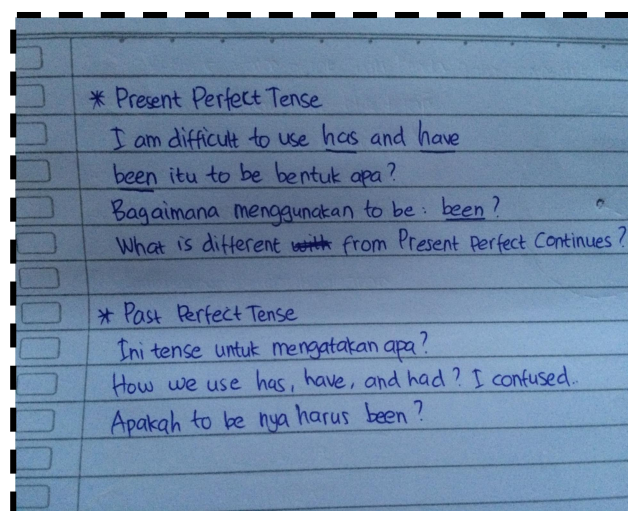 * Present Perfect Tense
I am difficult to use has and have
been itu to be bentuk apa?
Bagaimana menggunakan to be : been ?
What is different with from Present Perfect Continues ?
* Past Perfect Tense
Ini tense untuk mengatakan apa?
How we use has, have, and had? I confused..
Apakah to be nya harus been ?